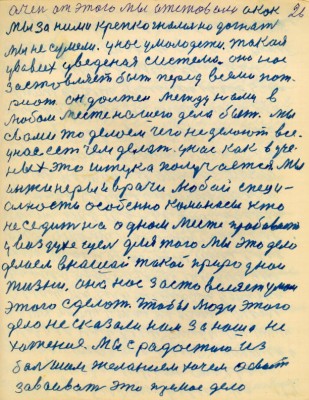 а чем от этого мы отстовали а как 26
мы за ними крепко жалко догнат
мы не сумеем. у нас у молодежи такая
у всех уведеная система. она нас
заставляет быт перед всеми пат-
риот. он должен между нами в
любом месте нашего дела быт. мы
свами то делаем чего не делают все.
у нас ест чем делат. у нас как в уче-
ных это штука получается мы
инжинеры и врачи любой специ-
алность особенно кто
не седит на одном месте пробоват
у воздухе сцел для того мы это дело
делаем в нашей такой природной
жизни. она нас заставляет
этого сделат. чтобы люди этого
дело не сказали нам за наше не
хотение. мы с радостию из
болшим желанием хочем
заваеват это прямое дело